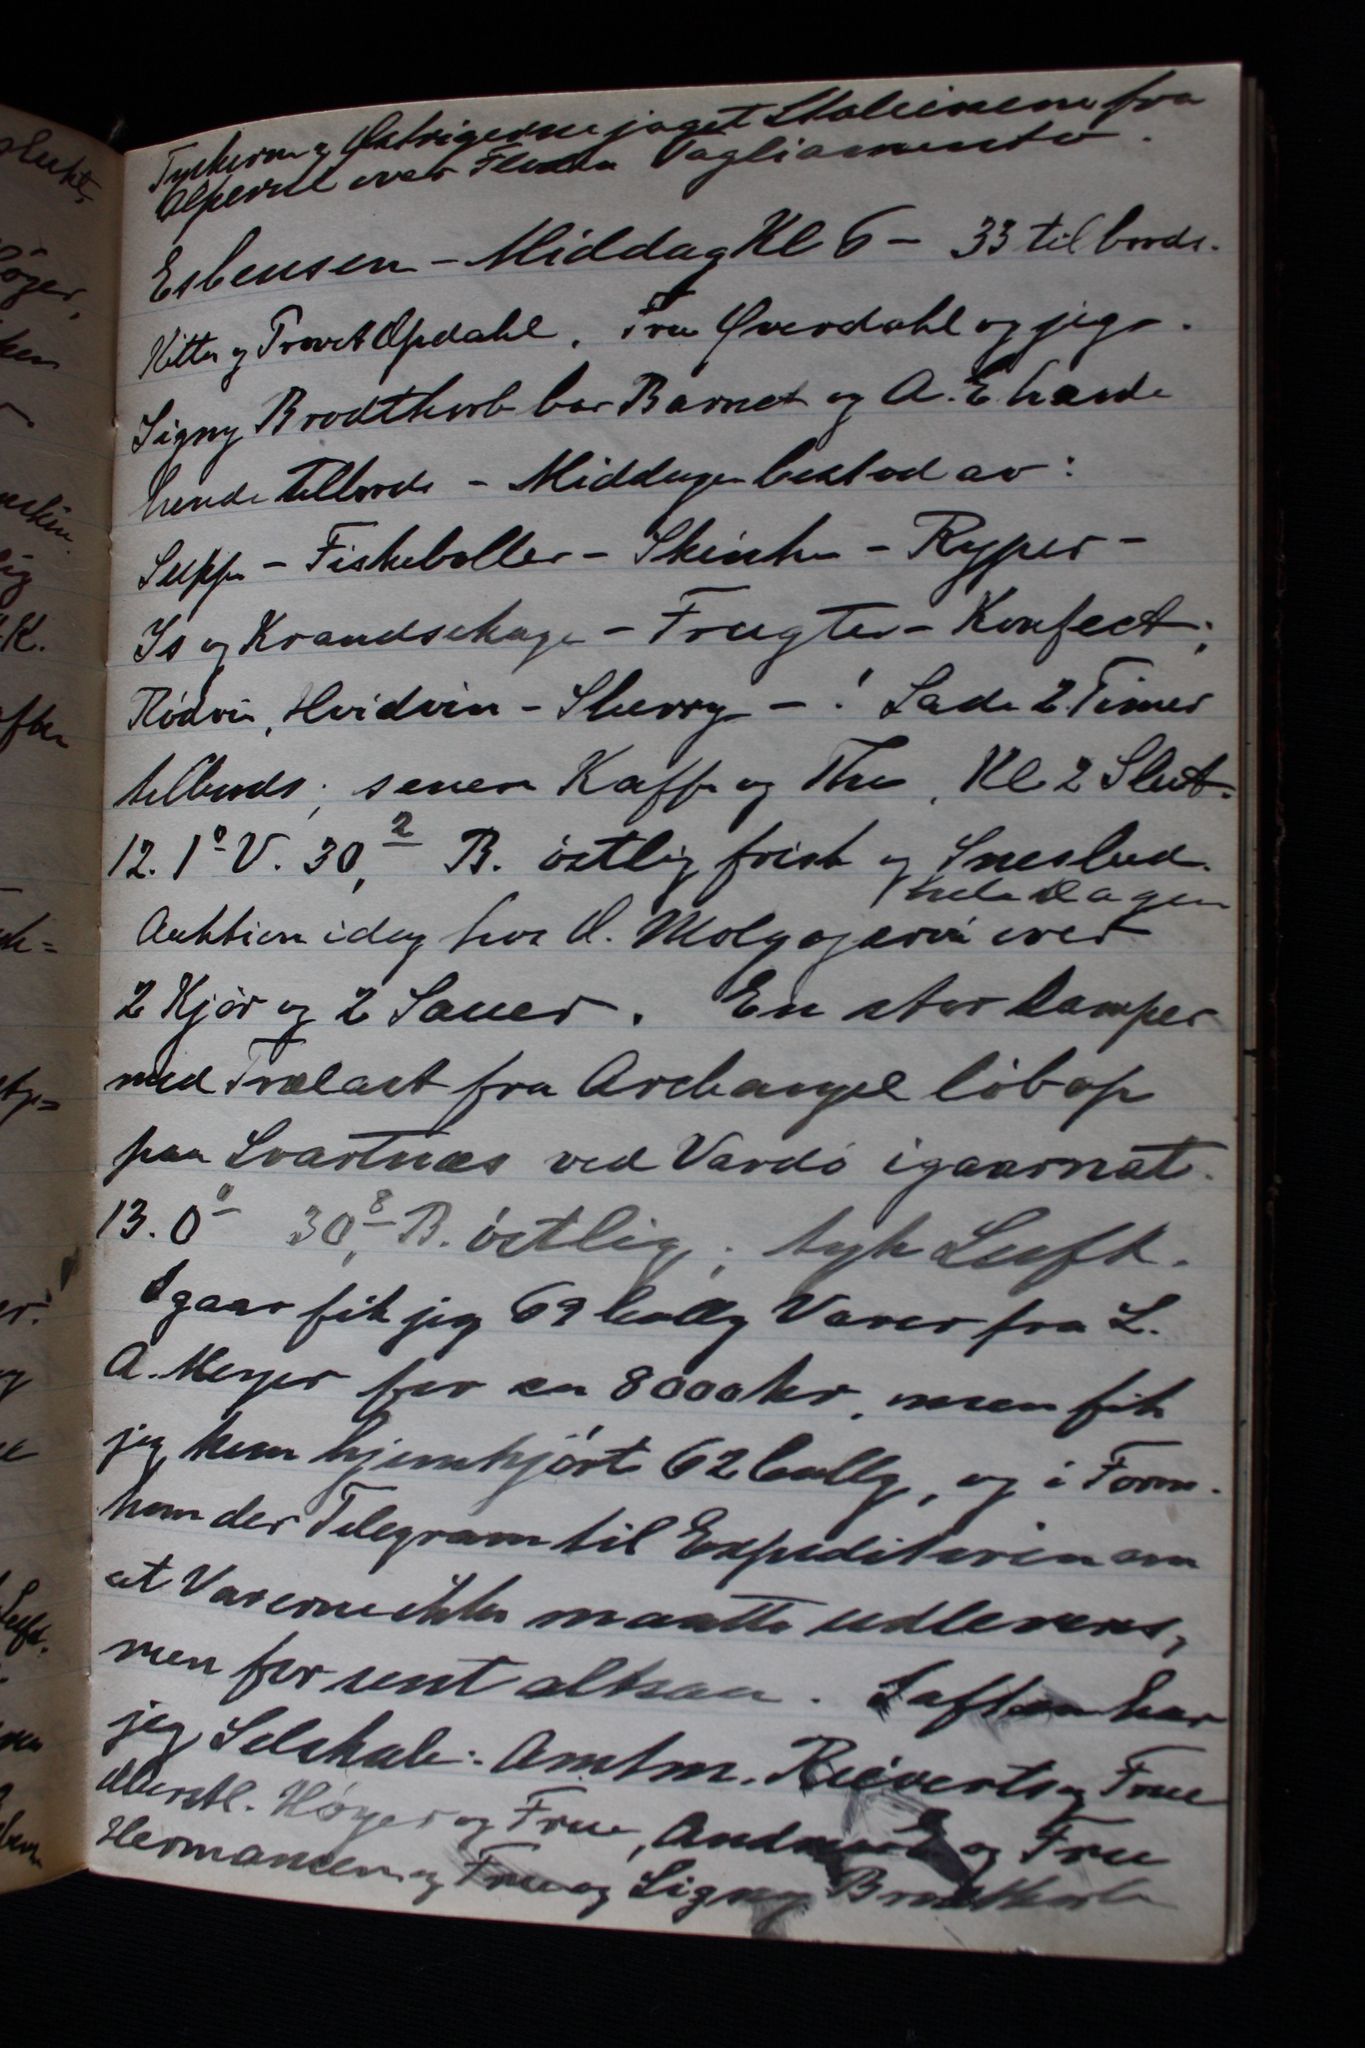 Tyskerne og Østrigerne jaget Italienerne fra
Alperne over Floden Tagliamento.
Esbensen - Middag Kl 6 - 33 tilbords.
Kitta og Provst Opdahl, Fru Øverdahl og jeg.
Signy Brodtkorb bar Barnet og A. E havde
hende tilbords - Middagen bestod av:
Suppe - Fiskeboller - Skinke - Ryper -
Is og Krandsekage - Frugter - Konfect;
Rødvin, Hvidvin - Sherry - ! Sade 2 Timer
tilbords; senere Kaffe og The, Kl 2 Slut.
12. 1° V. 30,2 B. östlig frisk og Sneslud
hele Dagen
Auktion idag hos O. Molygjærvi over
2 Kjör og 2 Sauer. En stor Damper
med Trælast fra Archangel löb op
paa Svartnæs ved Vardö igaarnat.
13. 0° 30,8 B. östlig, tyk Luft.
Igaar fik jeg 69 kolly Varer fra L.
A. Meyer for ca 8000 kr, men fik
jeg kun hjemkjört 62 kolly, og i Form.
kom der Telegram til Expeditören om
at Varerne ikke maatte udleveres,
men for sent altsaa. Iaften har
jeg Selskab: Amtm. Rieverts og Frue
Overstl. Höyer og Frue, og Frue
Hermansen og Frue og Signy Brodtkorb